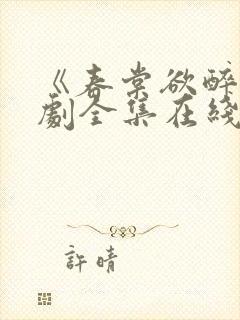 《春棠欲醉
劇全集在綫
許晴